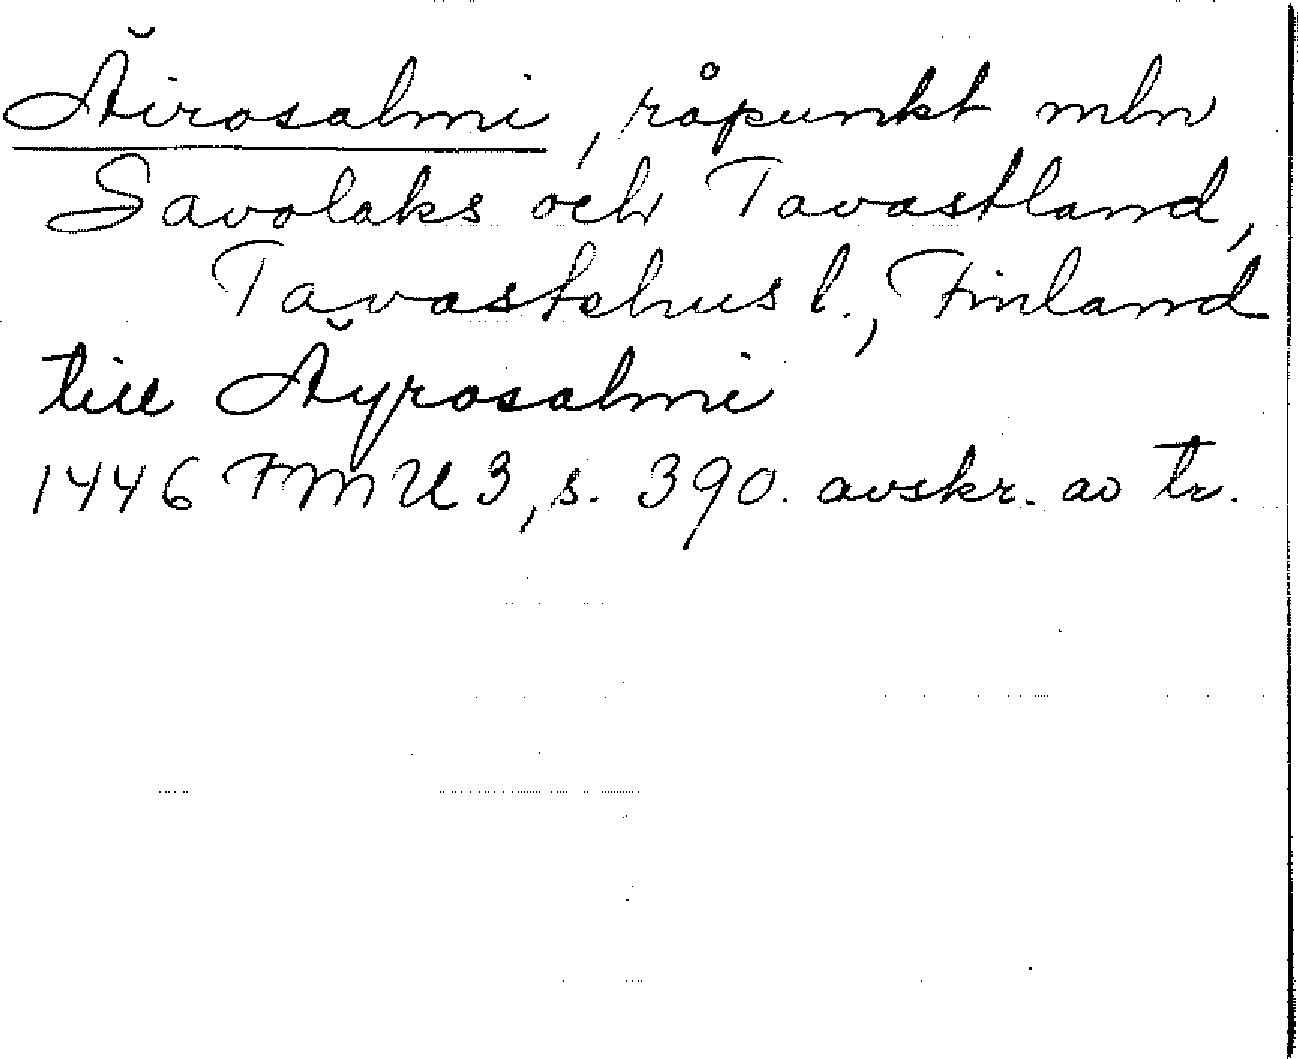 Äirosalmi, råpunkt mln
Savolaks och Tavastland,
Tavastehus l., Finland
till Äyrosalmi
1446 FMU 3, s. 390. avskr. av tr.